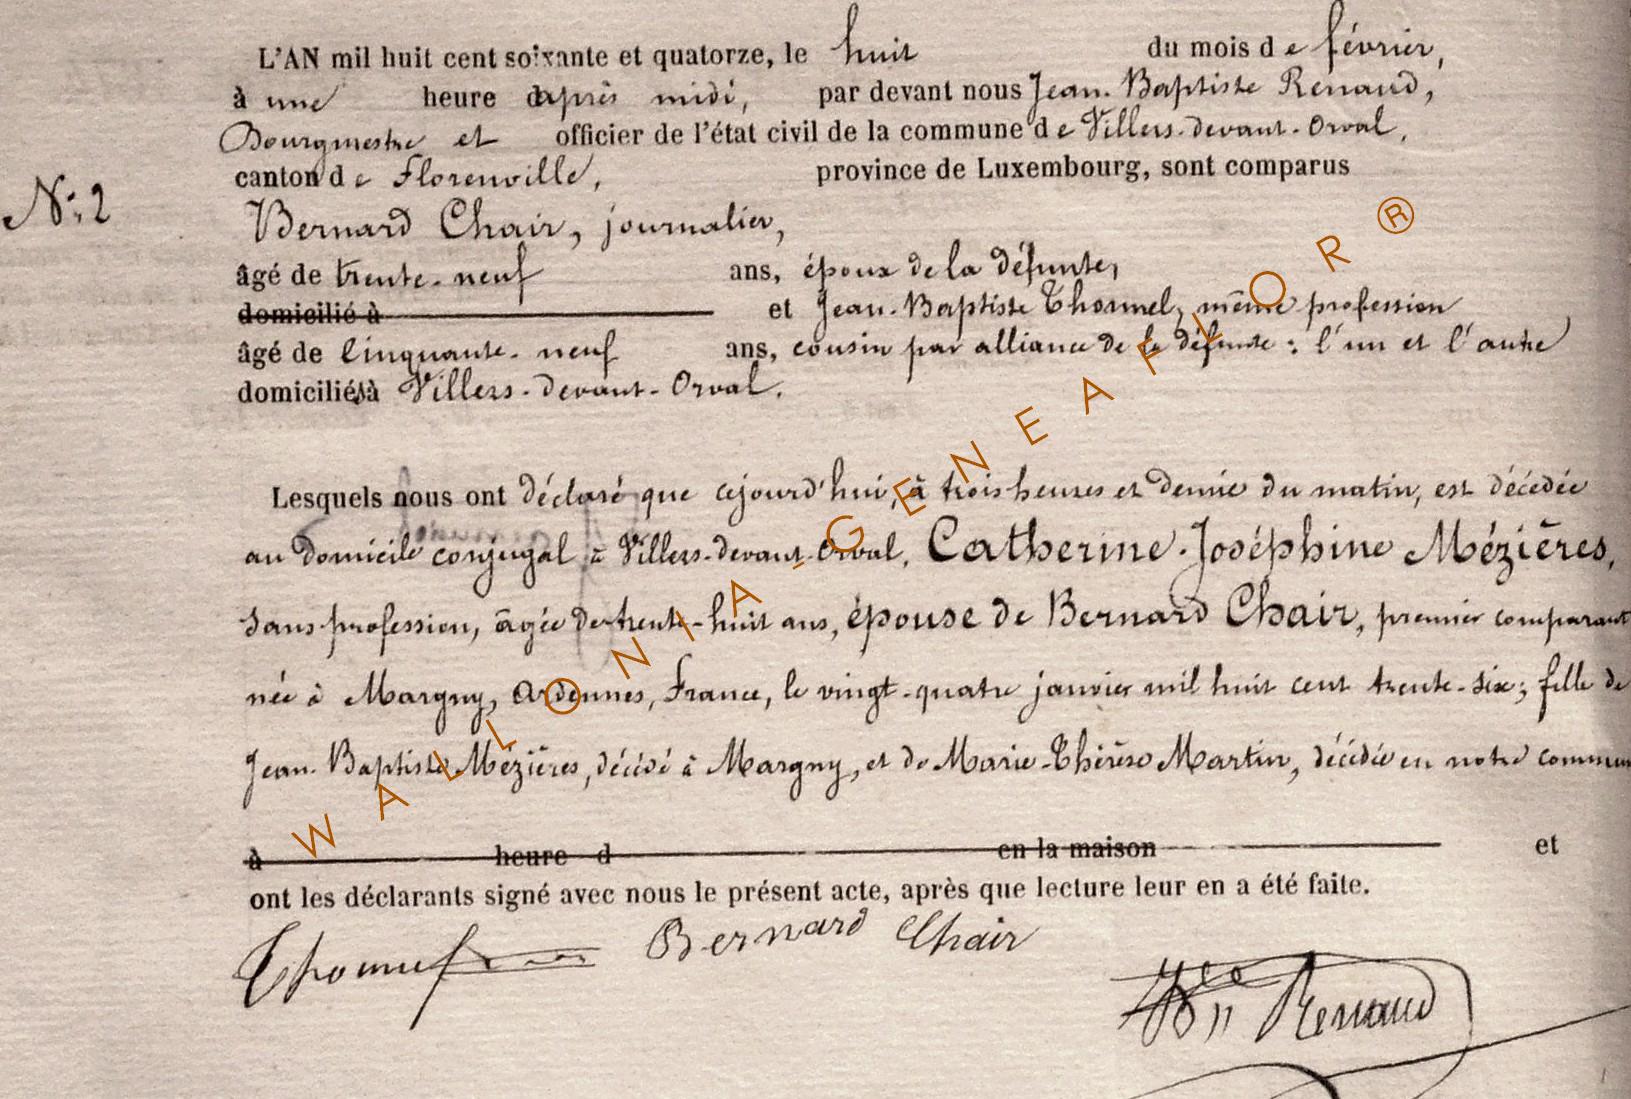 L'AN mil huit cent soixante et quatorze, le huit du mois de février,
à une heure d'après midi, par devant nous Jean-Baptiste Renaud,
Bourgmestre et officier de l'état civil de la commune de Villers-devant-Orval,
canton de Florenville, province de Luxembourg, sont comparus
N° 2
Bernard Chair, journalier,
âgé de trente-neuf ans, époux de la défunte,
domicilié à et Jean-Baptiste Thommel, même profession
âgé de Cinquante-neuf ans, cousin par alliance de la défunte : l'un et l'autre
domiciliés à Villers-devant-Orval.
Lesquels nous ont déclaré que cejourd'hui, à trois heures et demie du matin, est décédée
au domicile conjugal à Villers-devant-Orval, Catherine-Joséphine Mézières,
sans profession, âgée de trente-huit ans, épouse de Bernard Chair, premier comparant
née à Margny, Ardennes, France, le vingt-quatre janvier mil huit cent trente-six ; fille de
Jean-Baptiste Mézières, décédé à Margny, et de Marie-Thérèse Martin, décédée en notre commune
à heure d en la maison et
ont les déclarants signé avec nous le présent acte, après que lecture leur en a été faite.
Bernard Chair
Renaud
WALLONIA-GENEAFLOR®